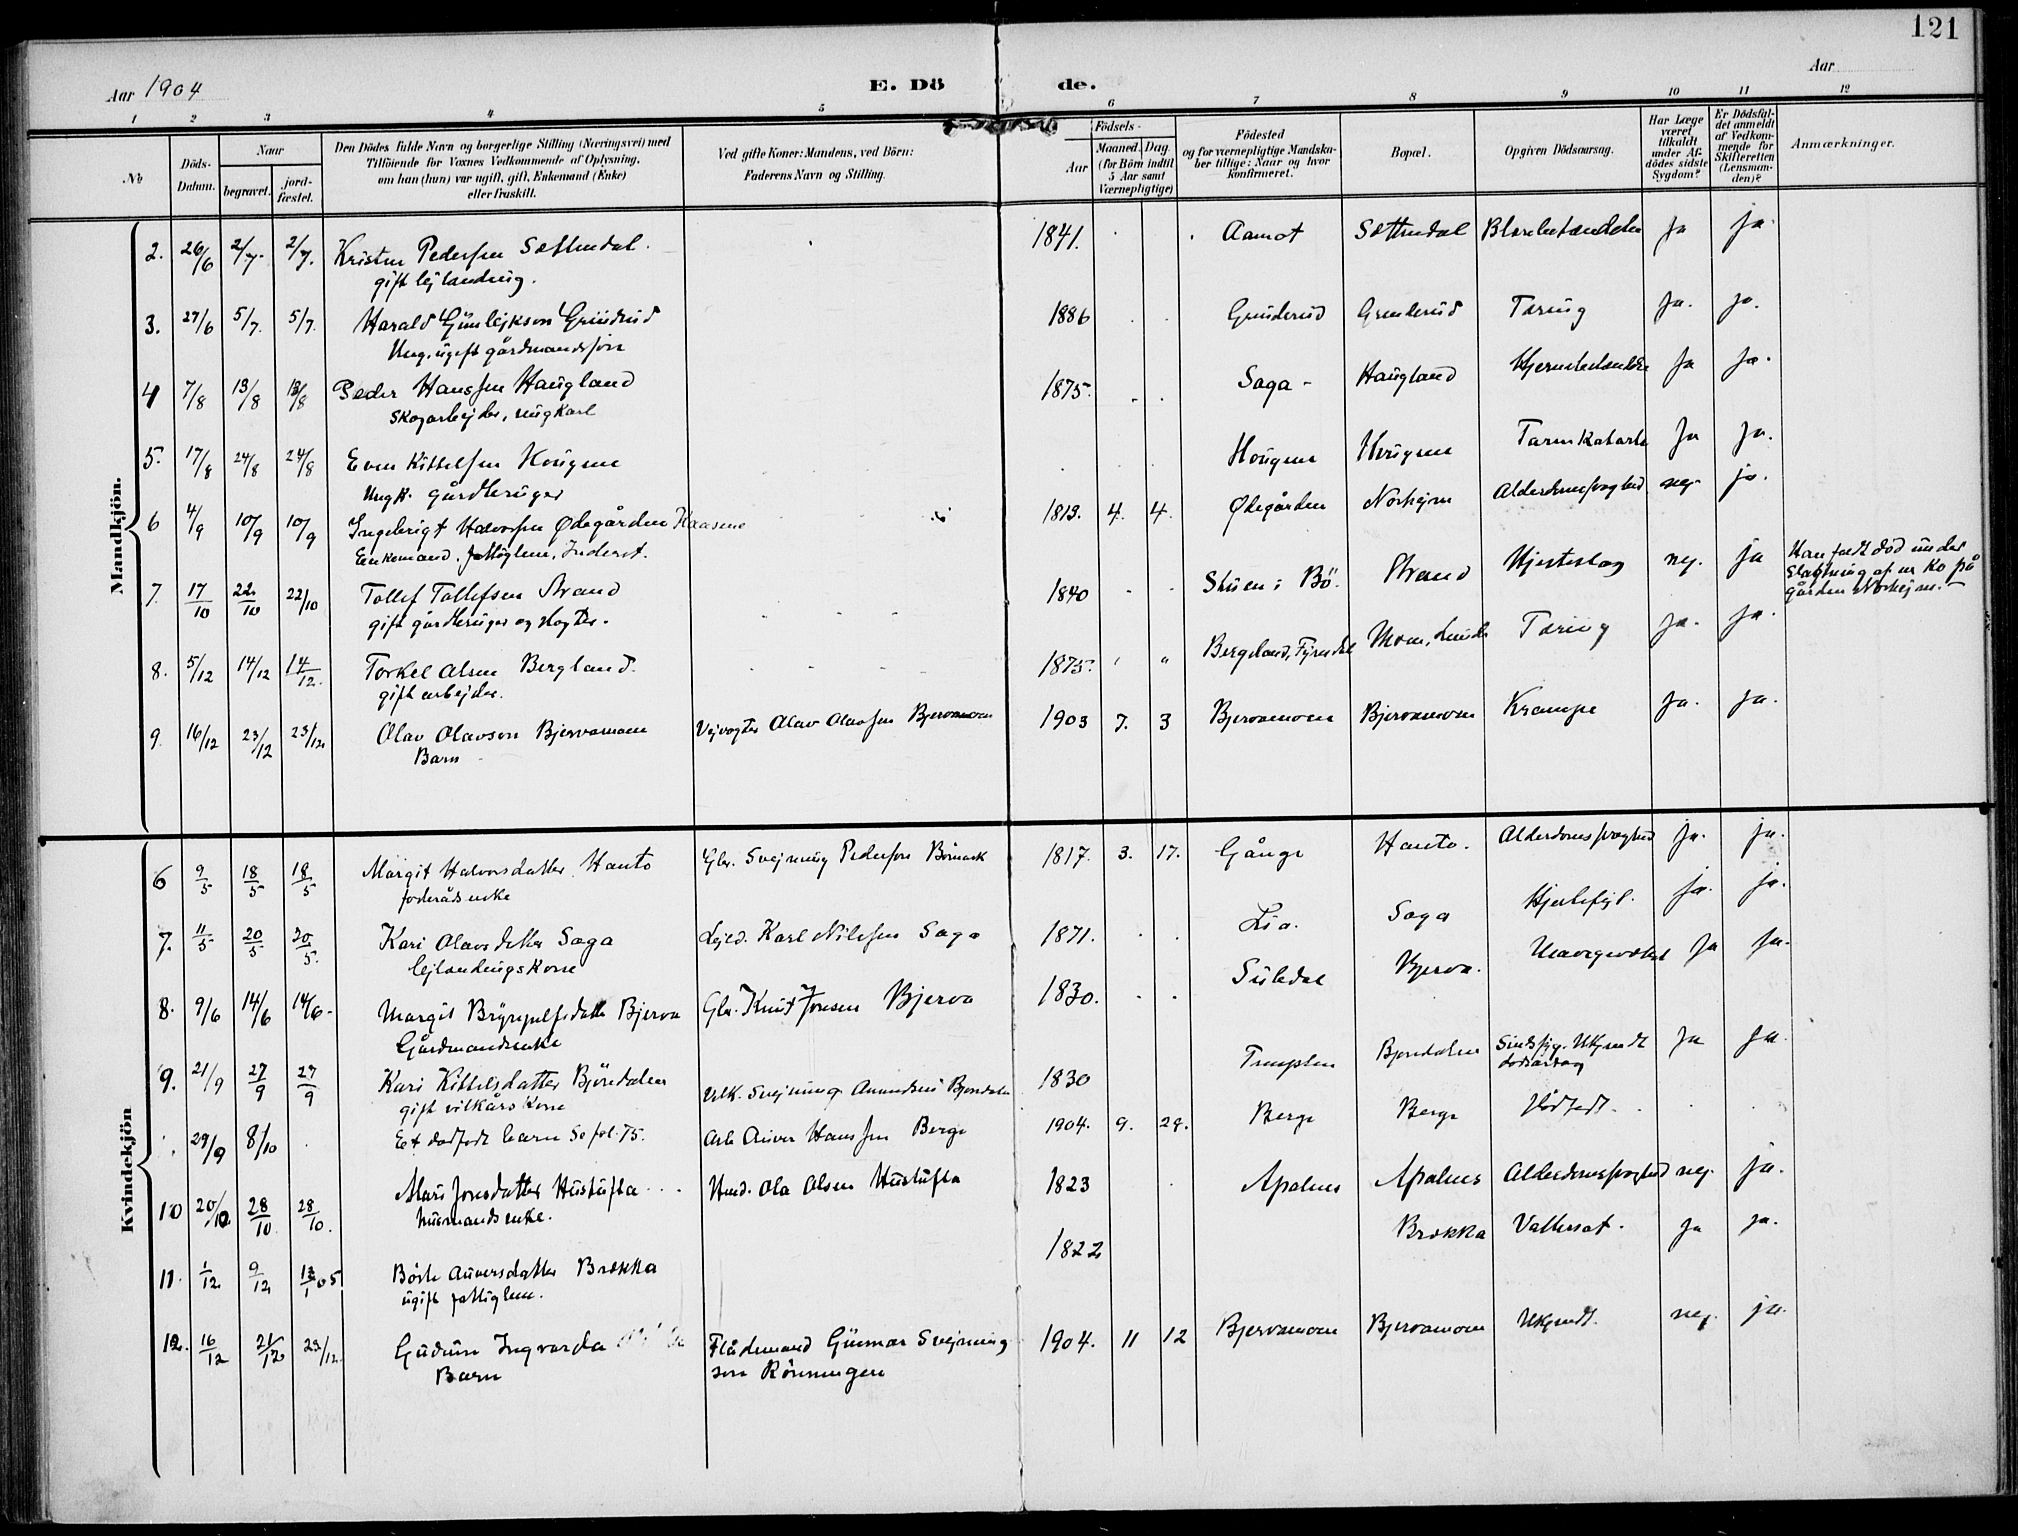 121
Aar 1904
E. Dö de.
Aar
1 2 3 4 5 6 7 8 9 10 11 12
№
Döds-Datum.
Naar
begravet.
jord-fæstet.
Den Dödes fulde Navn og borgerlige Stilling (Næringsvei) med
Tilföiende for Voxnes Vedkommende af Oplysning,
om han (hun) var ugift, gift, Enkemand (Enke)
eller fraskilt.
Ved gifte Koner: Mandens, ved Börn:
Faderens Navn og Stilling.
Födsels-
Aar
Maaned. Dag.
(for Börn indtil
5 Aar samt
Værnepligtige)
Födested
og for værnepligtige Mandska-
ber tillige: Naar og hvor
konfirmeret.
Bopæl.
Opgiven Dödsaarsag.
Har Læge
været
tilkaldt
under Af-
dödes sidste
Sygdom?
Er Dödsfal-
det anmeldt
af Vedkom-
mende for
Skifteretten
(Lensman-
den)?
Anmærkninger.
Mandkjön.
2. 26/6 2/7. 2/7. Kristen Pedersen Sættendal. 1841. Aamot Sættendal ja ja.
gift lejlænding.
3. 27/6 5/7. 5/7. Harald Gunlejkson Grinderud 1886 Grinderud Grinderud Tæring ja. ja.
Ung. ugift gårdmandssøn
4 7/8 13/8 13/8 Peder Hanssen Haugland 1875. Saga - Haugland ja ja.
Skogarbejder, ungkarl
5. 17/8 24/8 24/8 Even Kittelsen Hougene Hougene Hougene Tarmkatarh ja ja.
Ungk. gårdbruger
6 4/9 10/9 10/9 Ingebrigt Halvorsen Ødegården Kaasene 1813. 4. 4. Ødegården Norhejm Alderdomssvaghed nej. ja.
Enkemand. fattiglem, Inderst.
7. 17/10 22/10 22/10 Tollef Tollefsen Strand 1840 Stuen i Bö. Strand Hjerteslag nej. ja Han faldt død under
gift gårdbruger og slagter. Slagtning af en Ko på
gården Norhejm.
8. 5/12 14/12 14/12. Torkel Olsen Bergland. 1875. Bergeland, Fyresdal Moen, Lunde Tæring ja. ja.
gift arbejder.
9. 16/12 23/12 23/12. Olav Olavson Bjervamoen Vejvogter Olav Olavsen Bjervamoen 1903 7. 3 Bjervamoen Bjervamoen Krampe ja. ja.
Barn
Kvindekjön
6 9/5 18/5 18/5 Margit Halvorsdatter Hauto Gbr. Svejnung Pedersen 1817. 3. 17. Gånge Hauto. Alderdomssvaghed ja. ja.
foderåds enke
7. 11/5 20/5 20/5. Kari Olavsdatter Saga Lejl. Karl Nilssen Saga 1871. Lia. Saga Hjertefejl. ja. ja.
lejlændingskone
8. 9/6 14/6 14/6. Margit Brynjulfsdatter Bjerva Gbr. Knut Jonsen Bjerva 1830. Suledal Bjerva. ja ja.
Gårdmandsenke
9. 21/9 27/9 27/9 Kari Kittelsdatter Bjöndalen Vilk. Svejnung Amundsen Bjöndalen 1830 Bjöndalen Sindssyg. Ukjendt ja ja.
gift vilkårskone dödsårsag
29/9 8/10 Et dødfødt barn Se fol. 75. Arb. Auver Hanssen Berge 1904. 9. 29. Berge Berge Dödfødt.
10 20/10 28/10 28/10. Mari Jonsdatter Hustufta Husd. Ola Olsen Hustufta 1823 Apalnes Apalnes Alderdomssvaghed nej. ja.
husmandsenke.
11. 1/12 9/12 13/1 05. Börte Auversdatter Brækka 1822 Brækka Vattersot. ja ja.
ugift fattiglem.
12. 16/12 21/12 23/12. Gudrun Ingvarda Flådemand Gunnar Svejnung 1904. 11 12 Bjervamoen Bjervamoen Ukjendt. nej. ja.
Barn son Rönningen